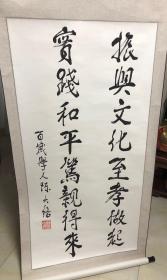 振興文化至孝做起
實踐和平篤親得來
百歲學人陳大絡